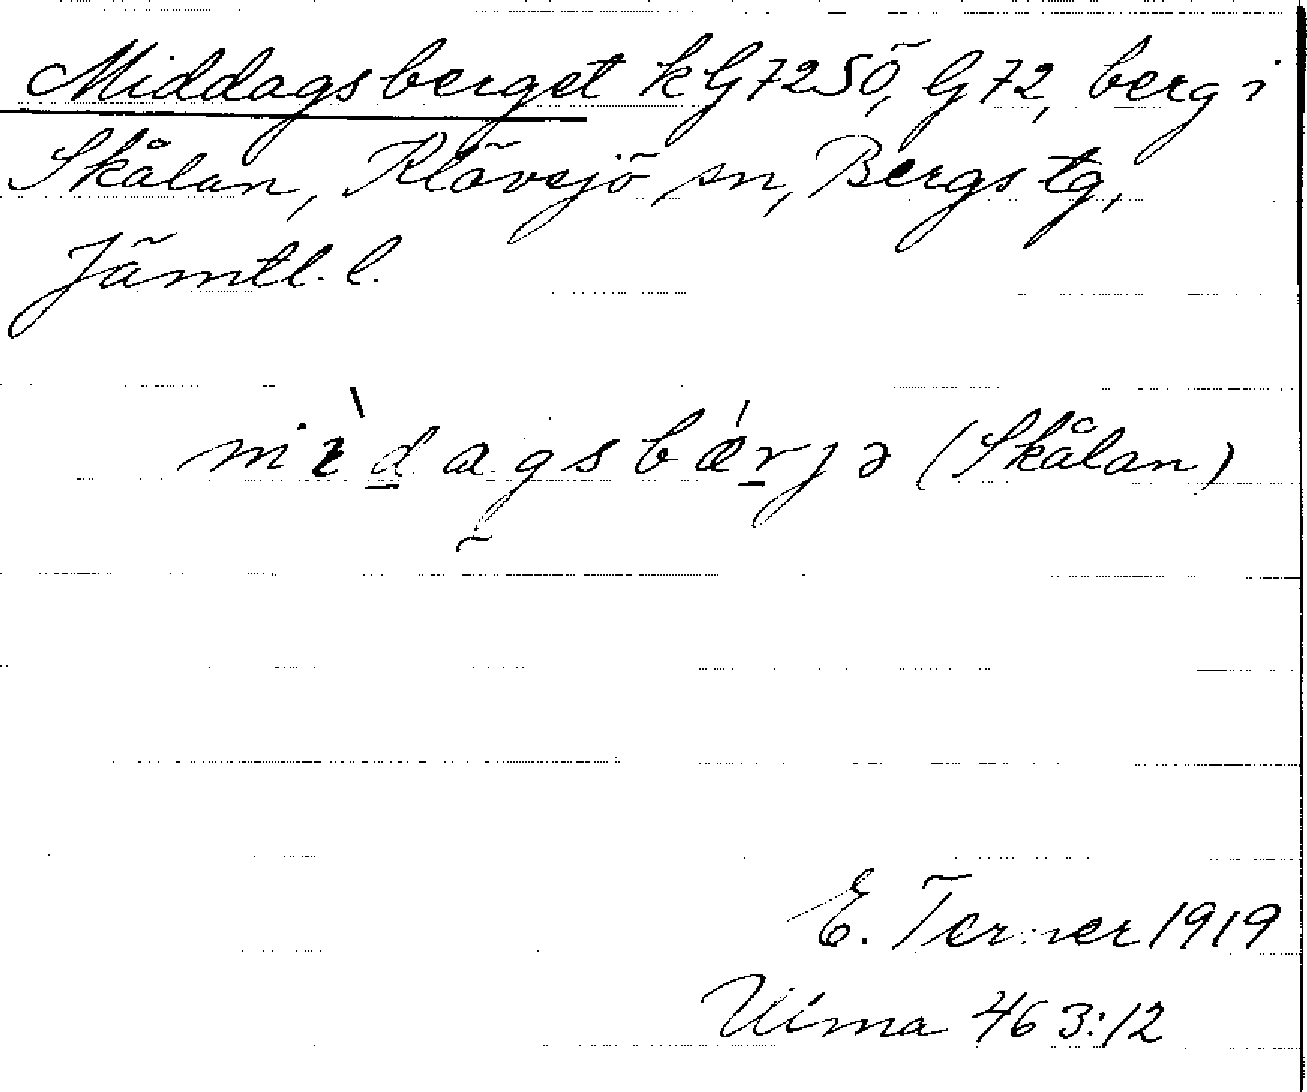 Middagsberget kG7250, G72, berg i
Skålan, Klövsjö sn, Bergs tg,
Jämtl. l.
mìdagsbǽrjə (Skålan)
E. Terner 1919
Ulma 463:12